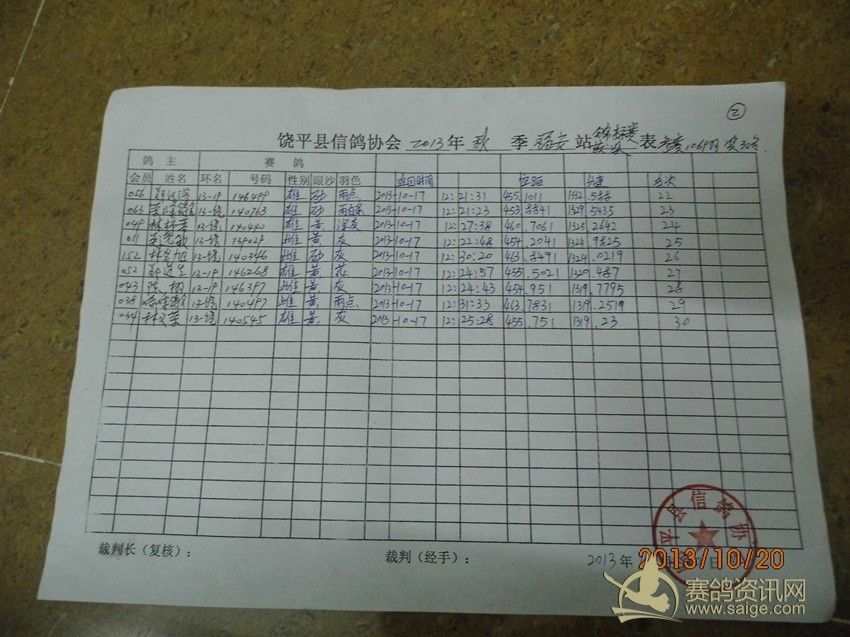 ②
饶平县信鸽协会 2013年 秋 季 瑞安 站 锦标赛 表 参赛1069羽 奖30名
鸽主 赛鸽
会员 姓名 环名 号码 性别 眼沙 羽色 返回时间 空距 分速 名次
056 13-19 146499 雄 砂 雨点 2013-10-17 12:21:31 455.1011 22
065 13-饶 140763 雄 砂 2013-10-17 12:21:23 1329.5435 23
049 13-饶 140440 雄 黄 深灰 2013-10-17 12:27:38 460.7061 1325.2642 24
011 13-饶 139029 雌 砂 灰 2013-10-17 12:22:48 454.2041 1324.9825 25
152 13-饶 140346 雌 砂 灰 2013-10-17 12:30:20 463.8491 1324.0219 26
052 13-19 146268 雄 黄 花 2013-10-17 12:24:57 455.5021 1320.487 27
043 13-19 146397 雌 黄 灰 2013-10-17 12:24:43 454.951 1319.7795 28
038 13-饶 140497 雌 黄 雨点 2013-10-17 12:31:33 463.7831 1319.2519 29
034 13-饶 140545 雄 黄 灰 2013-10-17 12:25:28 455.751 1319.23 30
裁判长（复核）： 裁判（经手）： 2013年 日
饶平县信鸽协会
2013/10/20
赛鸽资讯网
www.saige.com